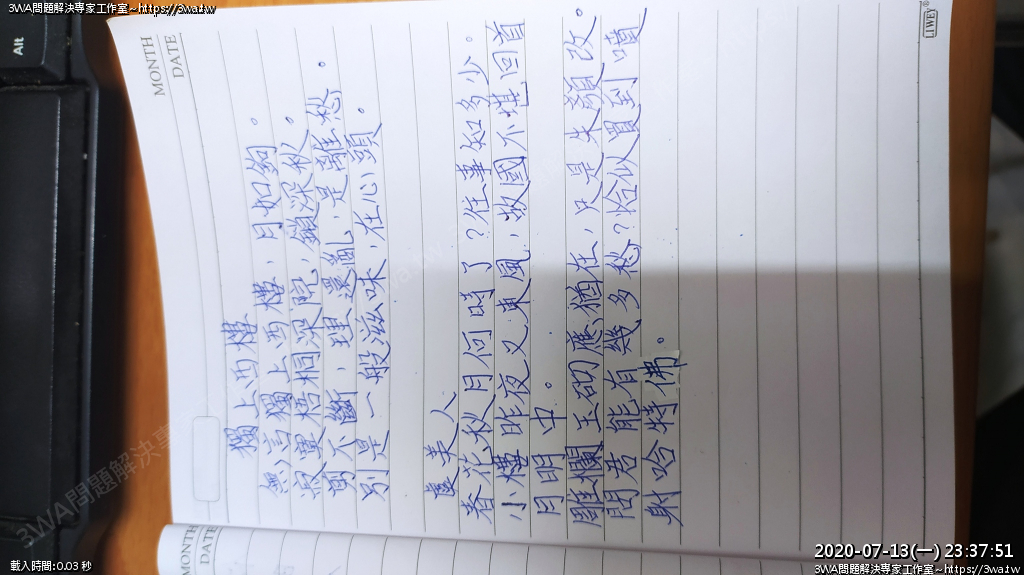 3WA問題解決專家工作室~https://3wa.tw
Alt
MONTH
DATE
獨上西樓
無言獨上西樓，月如鉤。
寂寞梧桐深院，鎖深秋。
剪不斷，理還亂，是離愁。
別是一般滋味，在心頭。
虞美人
春花秋月何時了？往事知多少。
小樓昨夜又東風，故國不堪回首
月明中。
雕欄玉砌應猶在，只是朱顏改。
問君能有幾多愁？恰似買到噴
射哈特佛。
MONTH
DATE
3WA問題解決專
載入時間:0.03 秒
2020-07-13(一) 23:37:51
3WA問題解決專家工作室~https://3wa.tw